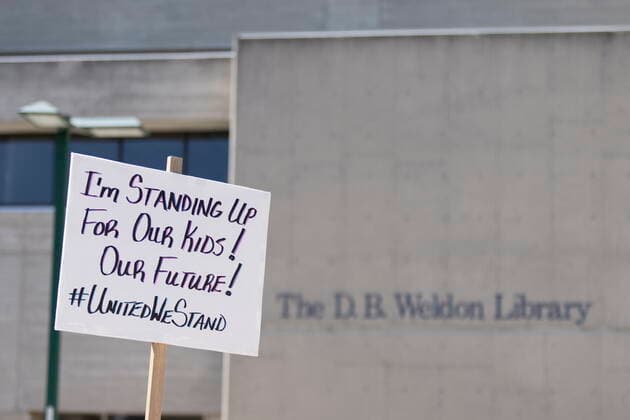 I'm Standing Up
For Our Kids!
Our Future!
#UnitedWeStand
The D. B. Weldon Library